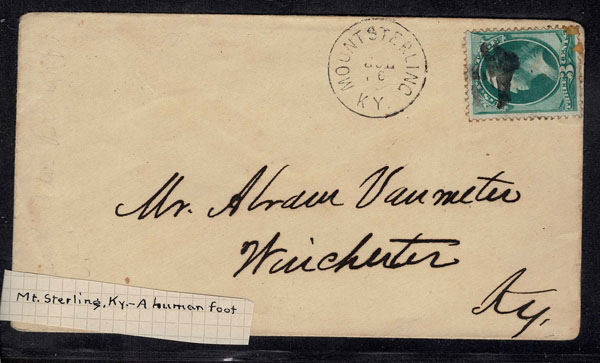 MOUNT STERLING
16
KY.
Mr. Abram Vanmeter
Winchester
Ky.
Mt. Sterling, Ky.—A human foot